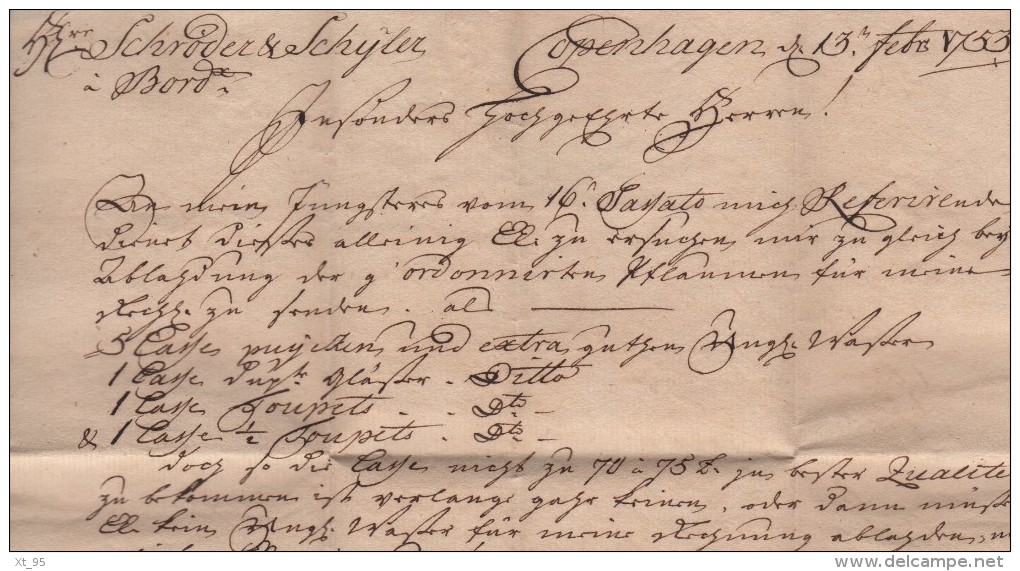 Hrr Schröder & Schÿler Copenhagen d. 13.n febr. 1753
à Bordx
Insonders Hochgeehrte Herren!
An mein Jüngsteres vom 16.t Passato mich Referirende
dienet dieses alleinig El. zu ersuchen, mir zu gleich bey
Abladung der g'ordonnirten Pflaumen für meine
Rechg. zu senden. als
5 Casse und extra guthen Ungh. Wasser
1 Casse Gläser. Ditto
1 Casse Toupets. . Dto
& 1 Casse ½ Toupets. Dto
doch so die Casse nicht zu 70 à 75 £. in bester Qualite
zu bekommen ist verlange gahr keinen, oder dann müste
El. kein Ungh. Wasser für meine Rechnung abladen,
Xt_95
delcampe.net